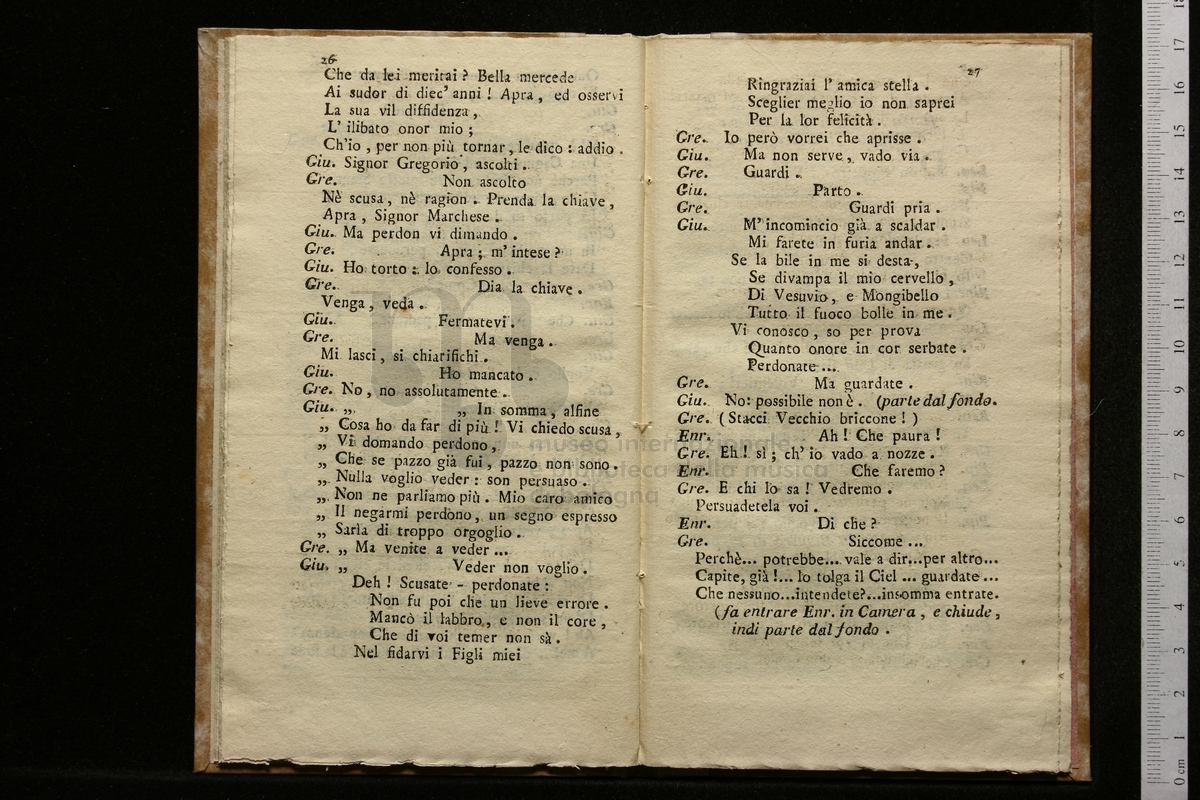 26
Che da lei meritai? Bella mercede
Ai sudor di diec' anni! Apra, ed osservi
La sua vil diffidenza,
L' ilibato onor mio;
Ch'io, per non più tornar, le dico: addio.
Giu. Signor Gregorio, ascolti.
Gre. Non ascolto
Nè scusa, nè ragion. Prenda la chiave,
Apra, Signor Marchese.
Giu. Ma perdon vi dimando.
Gre. Apra; m' intese?
Giu. Ho torto: lo confesso.
Gre. Dia la chiave.
Venga, veda.
Giu. Fermatevi.
Gre. Ma venga.
Mi lasci, si chiarifichi.
Giu. Ho mancato.
Gre. No, no assolutamente.
Giu. „ „ In somma, alfine
„ Cosa ho da far di più! Vi chiedo scusa,
„ Vi domando perdono,
„ Che se pazzo già fui, pazzo non sono.
„ Nulla voglio veder: son persuaso.
„ Non ne parliamo più. Mio caro amico
„ Il negarmi perdono, un segno espresso
„ Sarìa di troppo orgoglio.
Gre. „ Ma venite a veder ...
Giu. „ Veder non voglio.
Deh! Scusate - perdonate:
Non fu poi che un lieve errore.
Mancò il labbro, e non il core,
Che di voi temer non sà.
Nel fidarvi i Figli miei
27
Ringraziai l' amica stella.
Sceglier meglio io non saprei
Per la lor felicità.
Gre. Io però vorrei che aprisse.
Giu. Ma non serve, vado via.
Gre. Guardi.
Giu. Parto.
Gre. Guardi pria.
Giu. M' incomincio già a scaldar.
Mi farete in furia andar.
Se la bile in me si desta,
Se divampa il mio cervello,
Di Vesuvio, e Mongibello
Tutto il fuoco bolle in me.
Vi conosco, so per prova
Quanto onore in cor serbate.
Perdonate ...
Gre. Ma guardate.
Giu. No: possibile non è. (parte dal fondo.
Gre. (Stacci Vecchio briccone!)
Enr. Ah! Che paura!
Gre. Eh! sì; ch' io vado a nozze.
Enr. Che faremo?
Gre. E chi lo sa! Vedremo.
Persuadetela voi.
Enr. Di che?
Gre. Siccome ...
Perchè... potrebbe... vale a dir...per altro...
Capite, già!... Io tolga il Ciel ... guardate ...
Che nessuno...intendete?...insomma entrate.
(fa entrare Enr. in Camera, e chiude,
indi parte dal fondo.
museo internazionale
e biblioteca della musica
bologna
0 cm 1 2 3 4 5 6 7 8 9 10 11 12 13 14 15 16 17